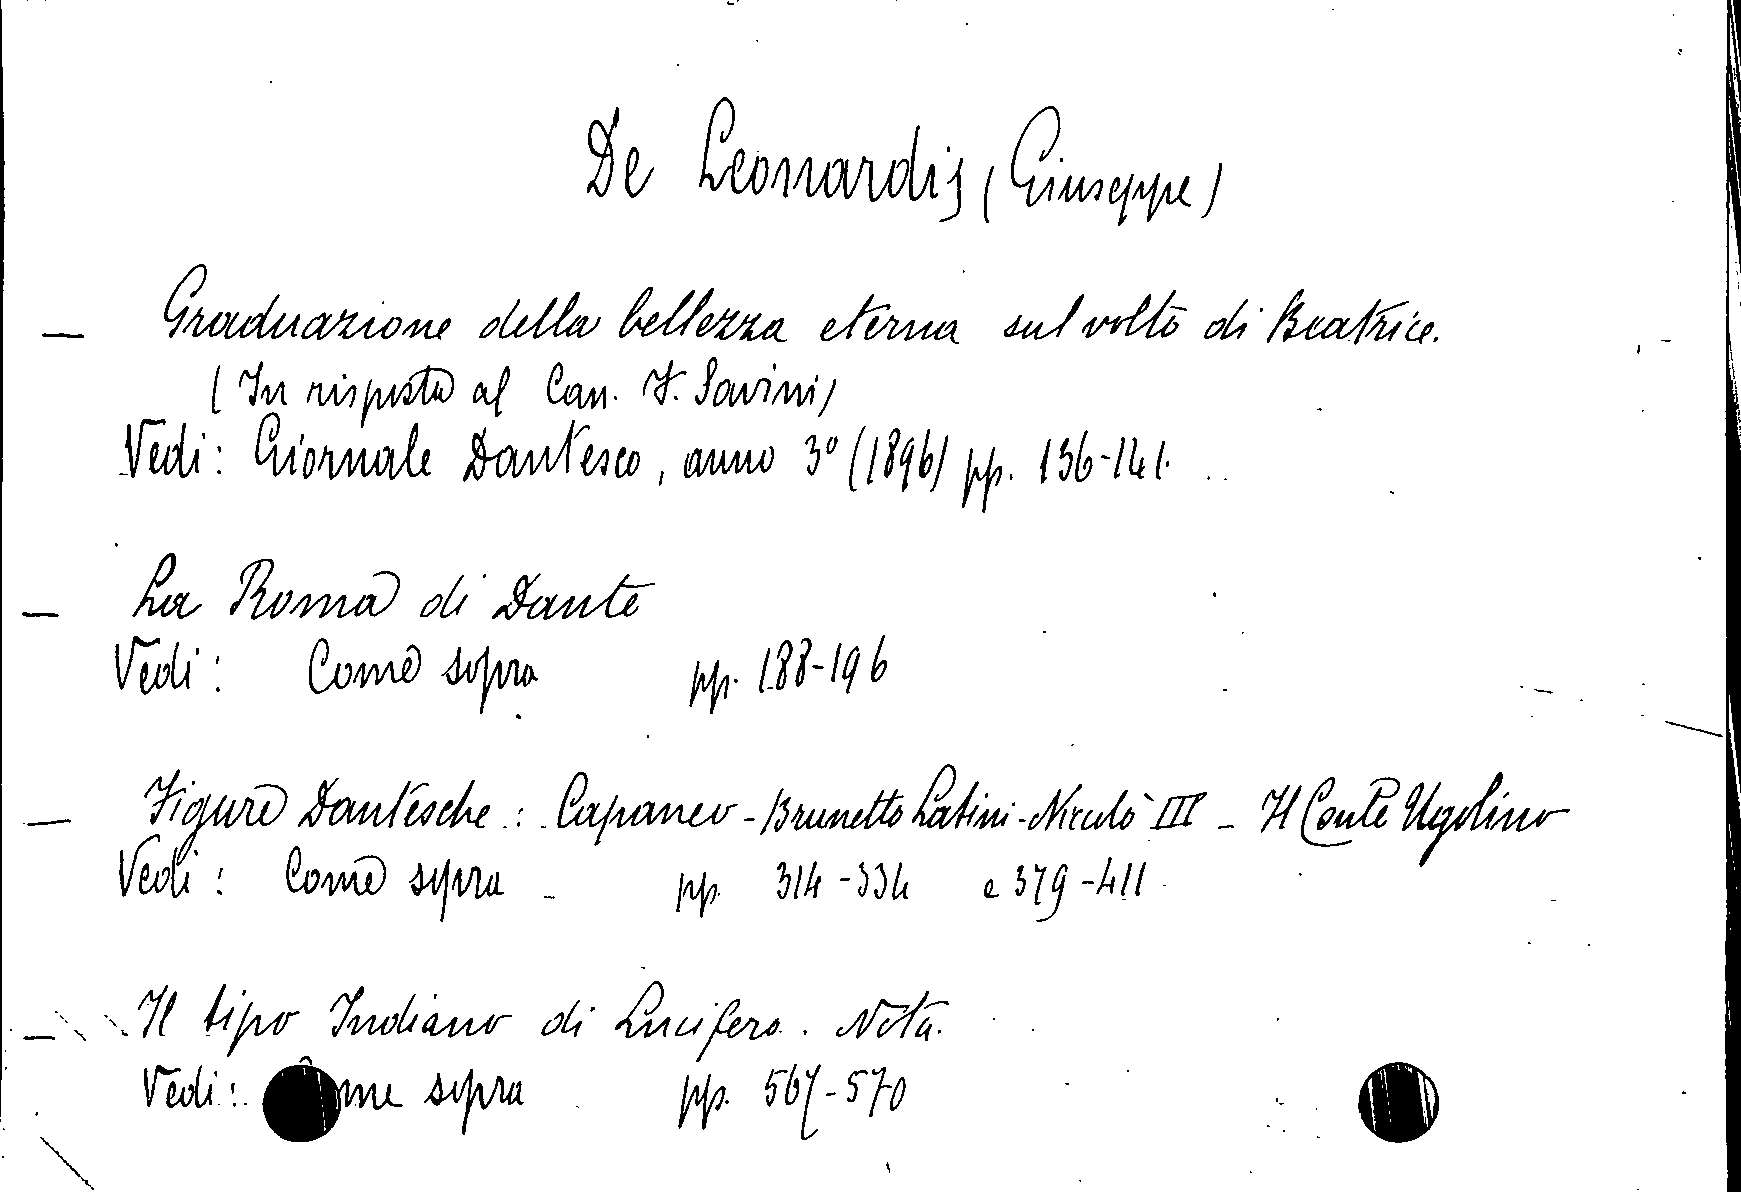 De Leonardis (Giuseppe)
— Graduazione della bellezza eterna sul volto di Beatrice.
(In risposta al Can. F. Savini)
Vedi: Giornale Dantesco, anno 3º (1896) pp. 136-141.
— La Roma di Dante
Vedi: Come sopra pp. 188-196
— Figure Dantesche: Capaneo - Brunetto Latini - Niccolò III - Il Conte Ugolino
Vedi: Come sopra - pp 314-334 e 379-411
— Il tipo Indiano di Lucifero. Nota.
Vedi: me sopra pp. 567-570